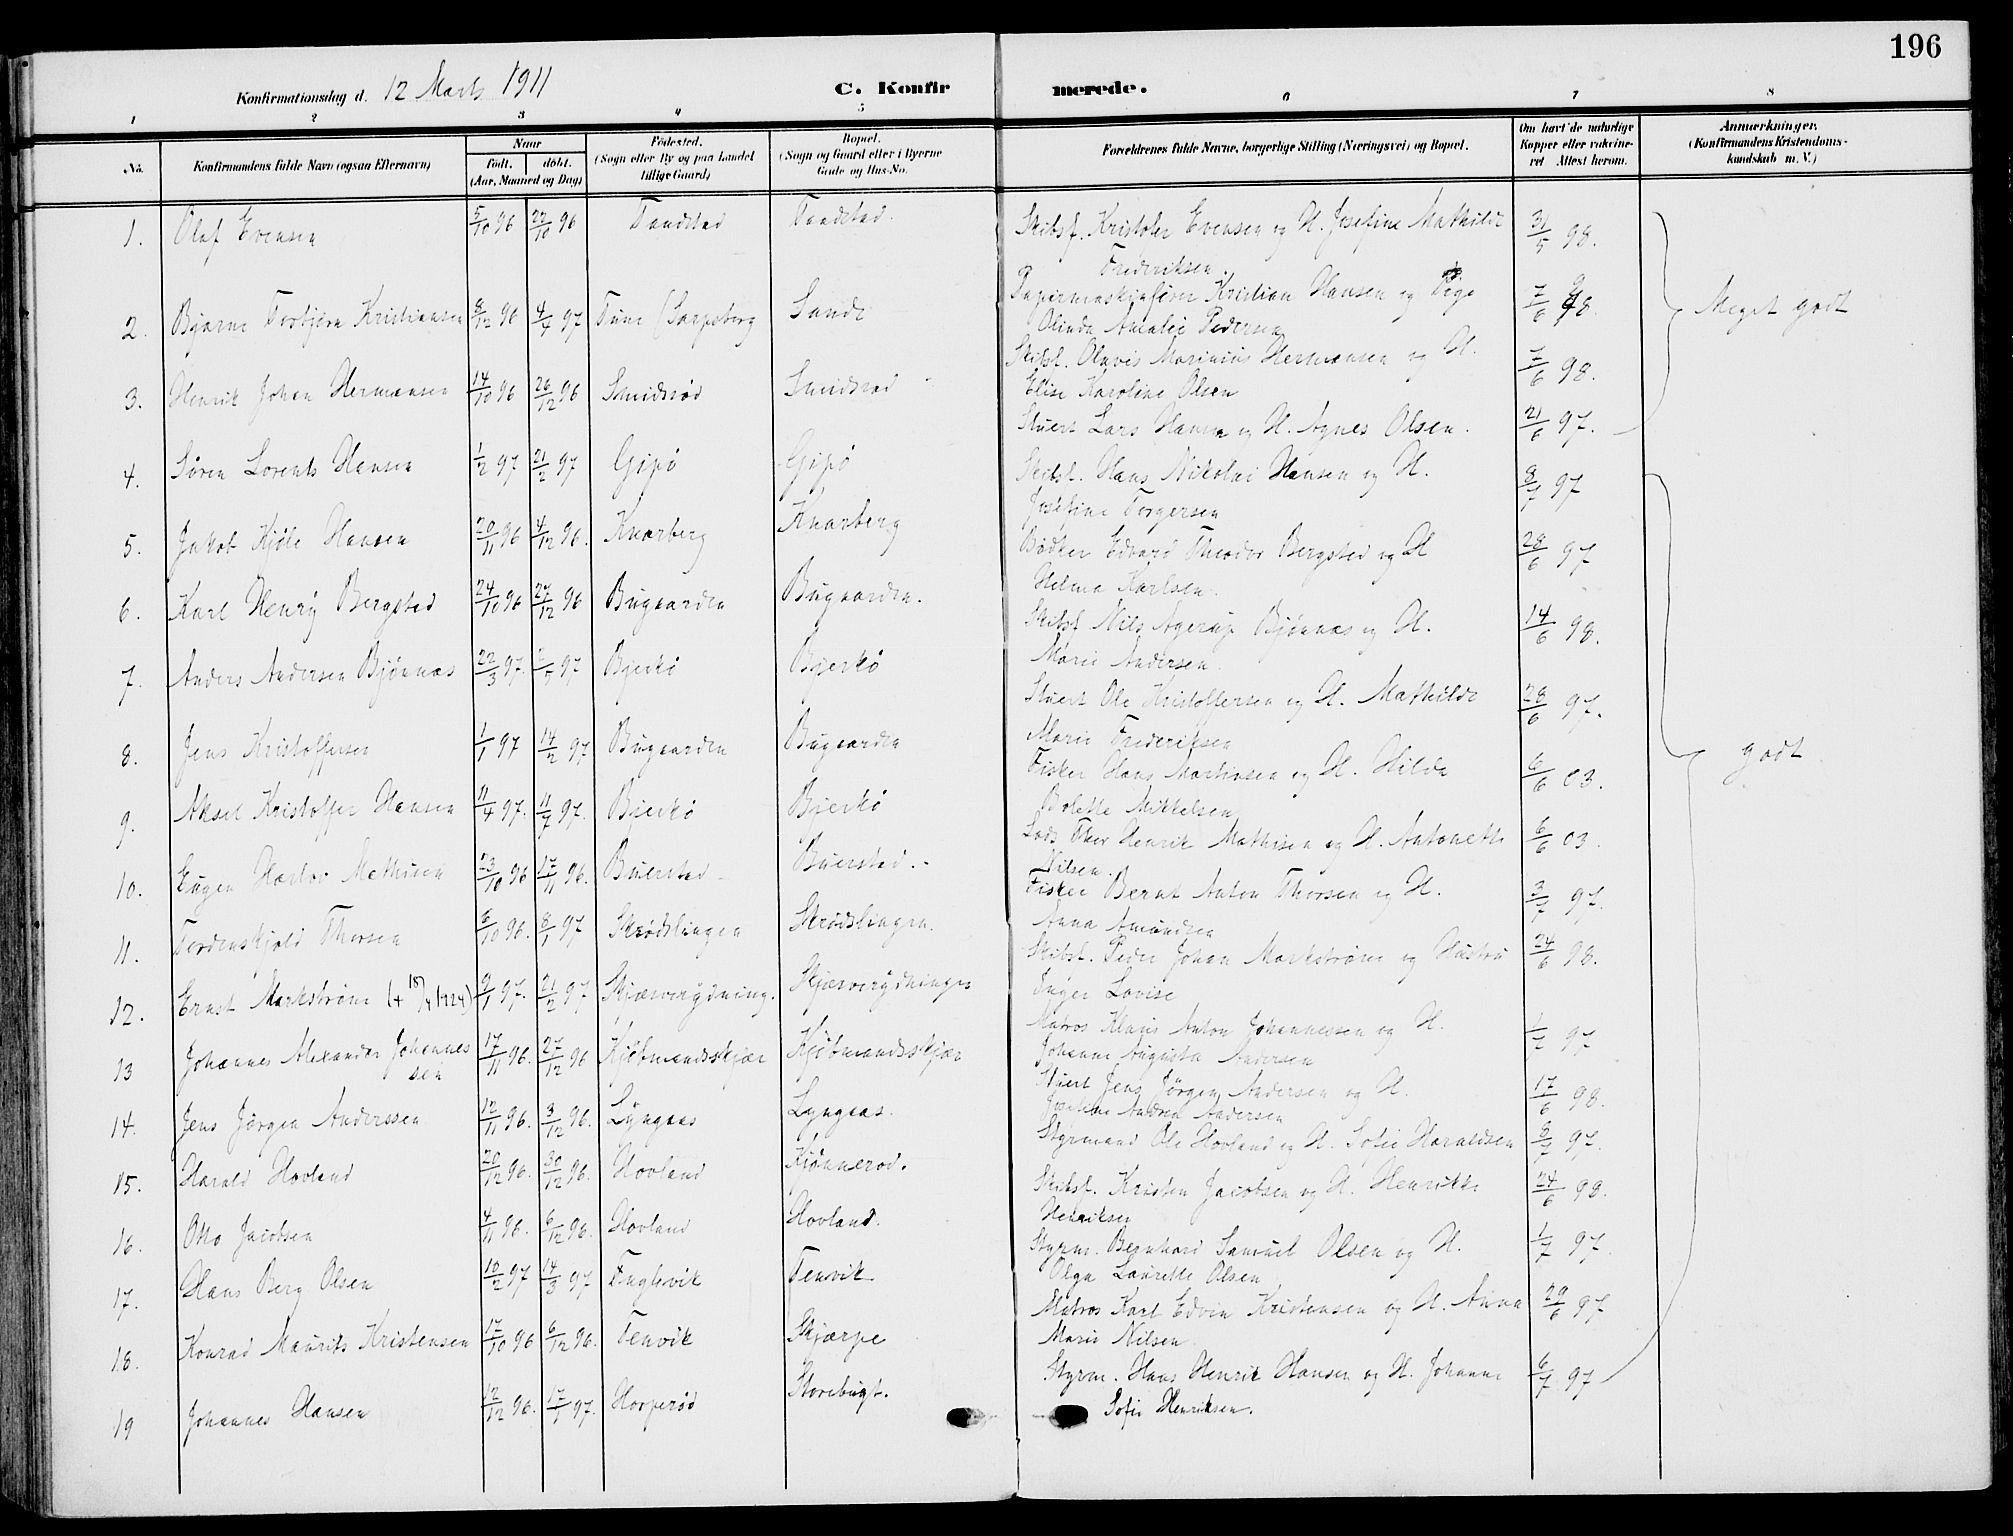 196
Konfirmationsdag d. 12 Marts 1911
C. Konfir merede.
1 2 3 4 5 6 7 8
No. Konfirmandens fulde Navn (ogsaa Efternavn) Naar født. døbt. (Aar, Maaned og Dag) Fødested. (Sogn eller By og paa Landet tillige Gaard) Bopæl. (Sogn og Gaard eller i Byerne Gade og Hus-No. Forældrenes fulde Navne, borgerlige Stilling (Næringsvei) og Bopæl. Om havt de naturlige Kopper eller vakcineret Attest herom. Anmærkninger. (Konfirmandens Kristendomskundskab m. V.)
1. Olaf Evensen 5/10 96 22/10 96 Tandstad Tandstad. Skibsf. Kristofer Evensen og H. Josefine Mathilde 31/5 98.
Frederiksen.
2. Bjarne Torbjørn Kristiansen 8/12 96 4/4 97 Tune (Sarpsborg Sande Papirmaskinfører Kristian Hansen og Pige 7/6 98. Meget godt
Olinda Amalie Pedersen
3. Henrik Johan Hermansen 14/10 96 26/12 96 Smidsrød Smidsrød Skibsf. Olavis Marinius Hermansen og H. 7/6 98.
Elise Karoline Olsen
4. Søren Lorents Hansen 1/2 97 21/2 97 Gipø Gipø Stuert Lars Hansen og H. Agnes Olsen. 21/6 97.
5. Jakob Kjøle Hansen 20/11 96 4/12 96. Knarberg Knarberg Skibsf. Hans Nikolai Hansen og H. 8/7 97
Josefine Torgersen
6. Karl Henry Bergsted 24/10 96 27/12 96 Bugaarden Bugaarden. Bødker Edvard Theodor Bergsted og H 28/6 97
Helma Karlsen.
7. Anders Andersen Bjønnæs 22/3 97. 97 Bjerkø Bjerkø Skibsf Nils Agerup Bjønnæs og H. 14/6 98.
Marie Andersen.
8. Jens Kristoffersen 1/1 97 14/2 97 Bugaarden Bugaarden Stuert Ole Kristoffersen og H. Mathilde 28/6 97.
Marie Frederiksen
9. Aksel Kristoffer Hansen 11/4 97. 11/7 97. Bjerkø Bjerkø Fisker Hans Martinsen og H. Hilda 6/6 03. godt
Bolette Mikkelsen
10. Eugen Mathisen 23/10 96 17/11 96. Buerstad Buerstad. Lods Thor Henrik Mathisen og H. Antonette 6/6 03.
Nilsen.
11. Tordenskjold Thorsen 6/10 96. 8/1 97 Skrødslingen Skrødslingen. Fisker Bernt Anton Thorsen og H. 3/7 97.
Anna Amundsen
12. Ernst Markstrøm (+ 18/4 1924) 9/1 97. 21/2 97 Skjærsvergdning. Skjærsvergdningen Skibsf. Peder Johan Markstrøm og Hustru 24/6 98.
Inger Lovise
13 Johannes Alexander Johannessen 17/11 96. 27/12 96 Kjøbmandsskjær Kjøbmandsskjær Matros Klaus Anton Johannessen og H. 1/7 97
Johanne Augusta Andersen
14. Jens Jørgen Anderssen 12/11 96. 3/12 96. Lyngaas Lyngaas. Stuert Jens Jørgen Andersen og H. 17/6 98.
Andrea Andersen
15. Harald Hovland 20/12 96. 30/12 96. Hovland Kjønnerød. Styrmand Ole Hovland og H. Sofie Haraldsen 8/7 97.
16. Otto Jacobsen 4/11 96. 6/12 96. Hovland Hovland. Skibsf. Kristen Jacobsen og H. Henrikke 24/6 98.
Henriksen
17. Hans Berg Olsen 10/2 97 14/3 97 Fuglevik Tenvik Styrm. Bernhard Samuel Olsen og H. 1/7 97.
Olga Laurette Olsen
18. Konrad Maurits Kristensen 17/10 96 6/12 96. Tenvik Skjærpe Matros Karl Edvin Kristensen og H. Anna 29/6 97
Marie Nilsen
19 Johannes Hansen 12/12 96. 17/1 97. Horperød Storebugt. Styrm. Hans Henrik Hansen og H. Johanne 6/7 97
Sofie Henriksen.